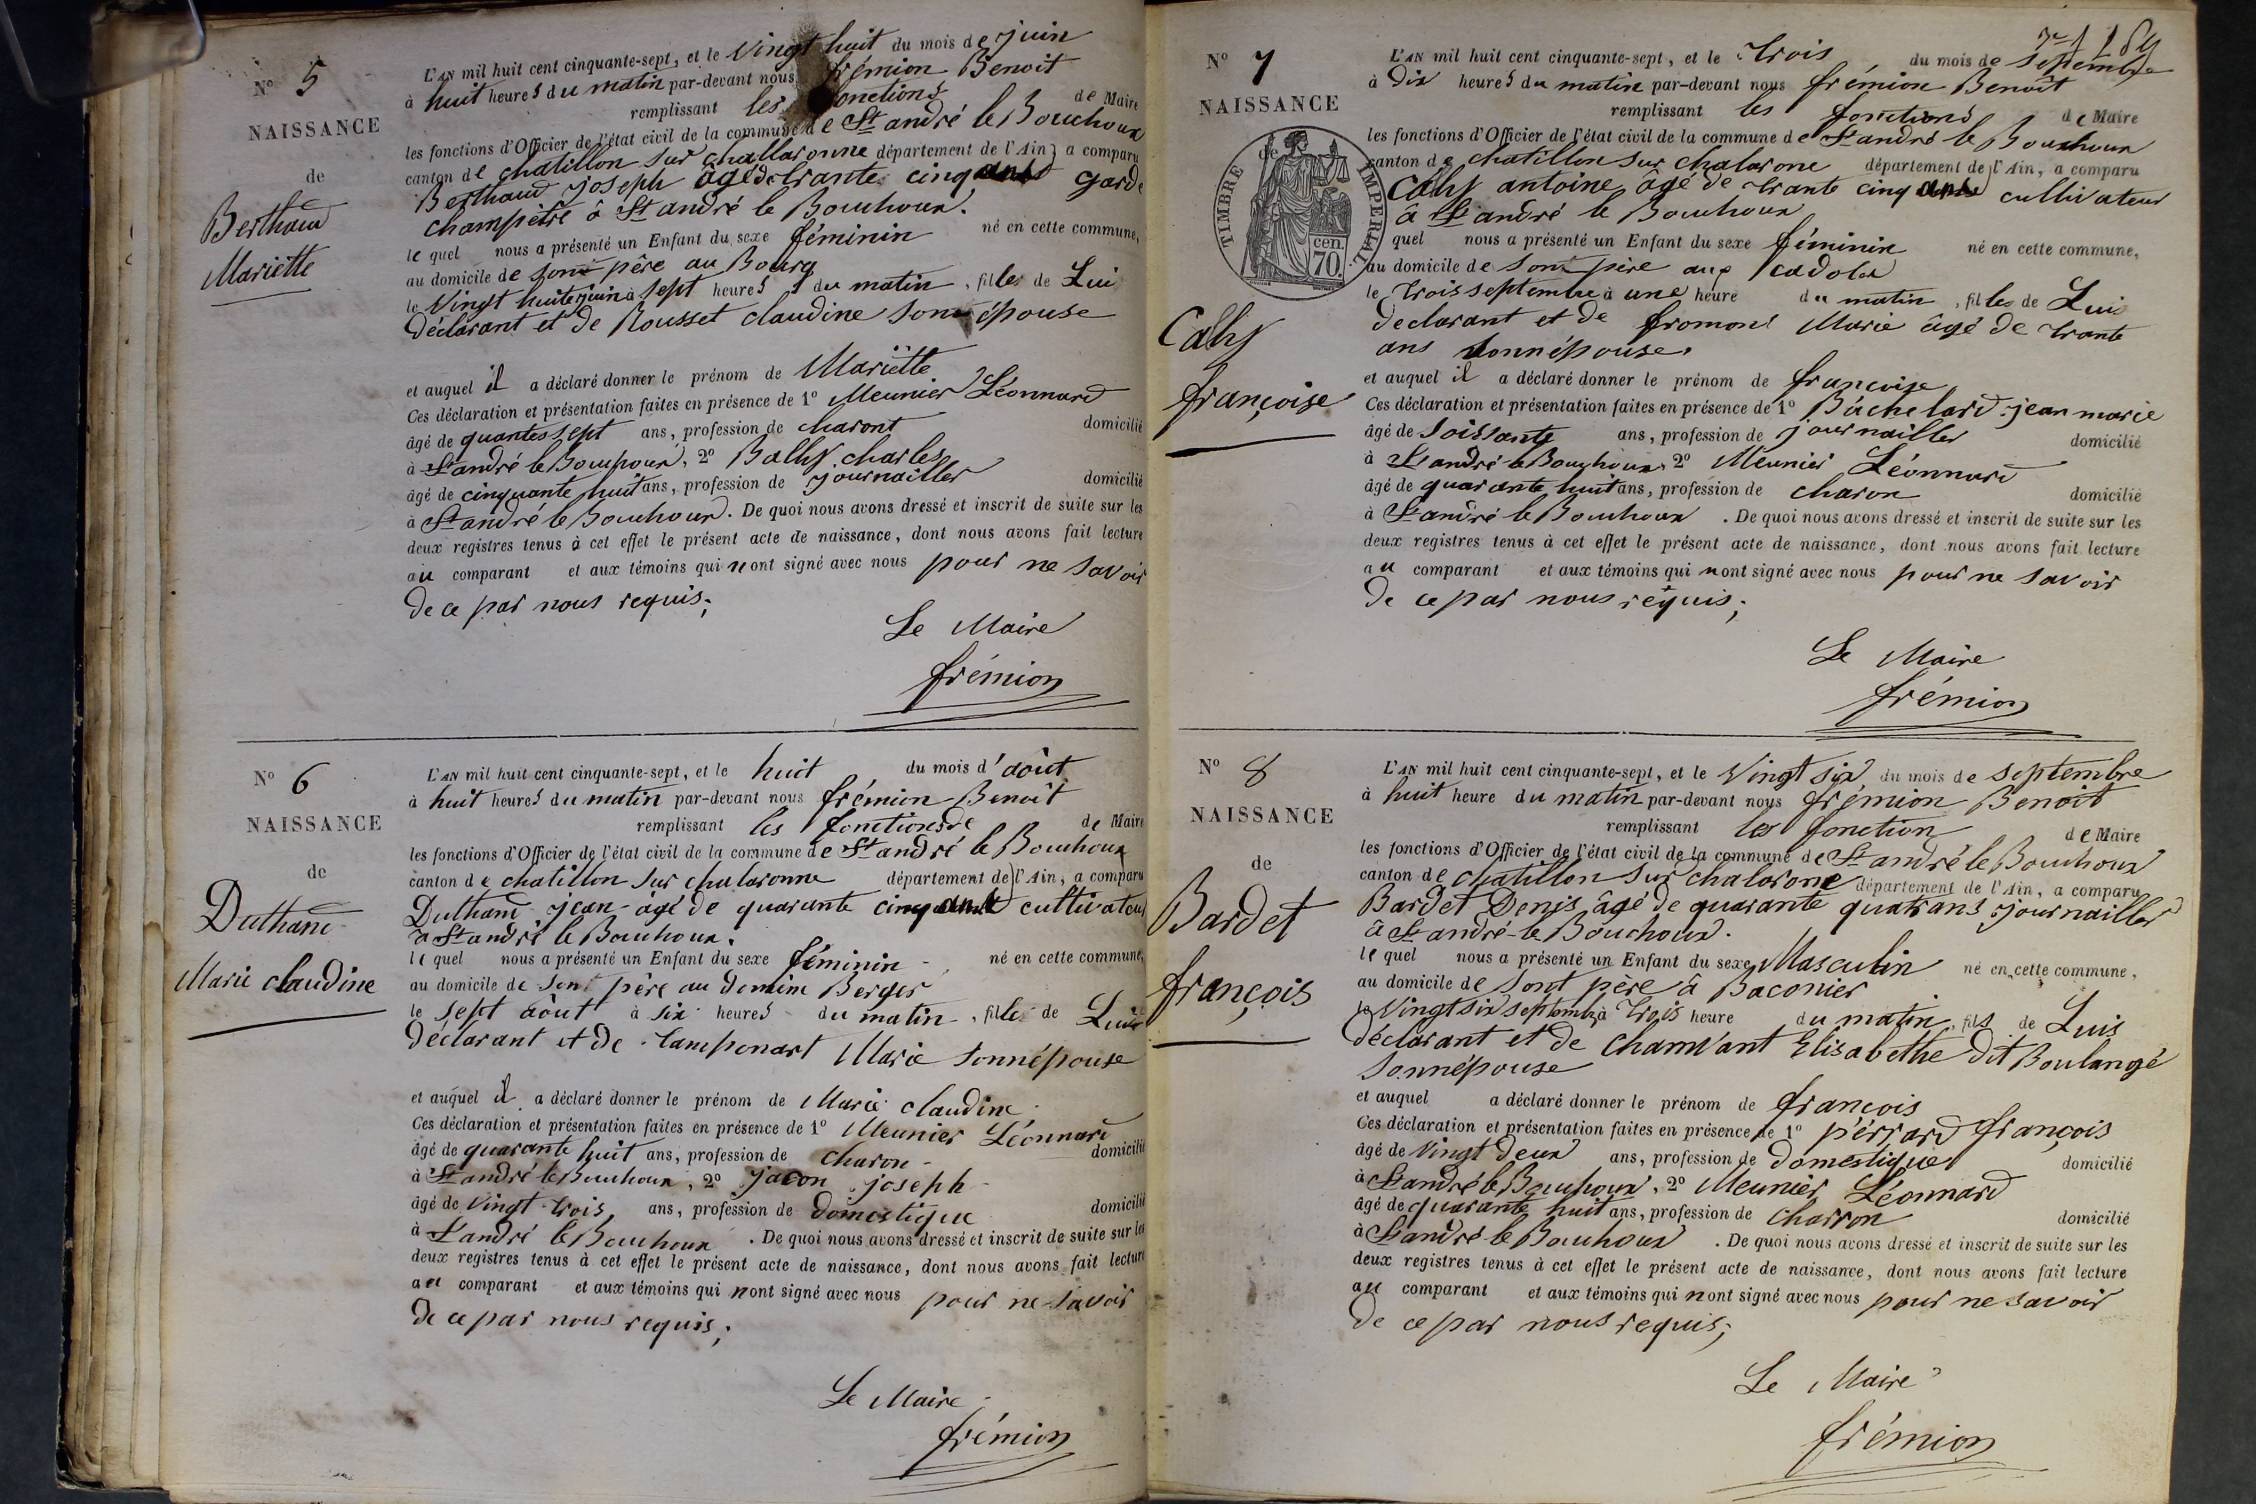 N° 5
NAISSANCE
de
Berthaud
Mariette
L'AN mil huit cent cinquante-sept, et le Vingt huit du mois de juin
à huit heures du matin par-devant nous frémion Benoit
remplissant les fonctions de Maire
les fonctions d'Officier de l'état civil de la commune de St andré le Bouchoux
canton de chatillon sur challaronne département de l'Ain, a comparu
Berthaud joseph âgé de trante cinq ans garde
champêtre à St andré le Bouchoux.
le quel nous a présenté un Enfant du sexe féminin né en cette commune,
au domicile de son père au Bourg
le Vingt huit juin à sept heures du matin, fille de Lui
déclarant et de Rousset claudine son épouse
et auquel il a déclaré donner le prénom de Mariette
Ces déclaration et présentation faites en présence de 1° Meunier Léonnard
âgé de quantes sept ans, profession de charont domicilié
à St andré le Bouchoux, 2° Balhy charles
âgé de cinquante huit ans, profession de journailler domicilié
à St andré le Bouchoux. De quoi nous avons dressé et inscrit de suite sur les
deux registres tenus à cet effet le présent acte de naissance, dont nous avons fait lecture
au comparant et aux témoins qui nont signé avec nous pour ne savoir
de ce par nous requis;
Le Maire
frémion
N° 6
NAISSANCE
de
Duthand
Marie claudine
L'AN mil huit cent cinquante-sept, et le huit du mois d'août
à huit heures du matin par-devant nous frémion Benoît
remplissant les fonctions de de Maire
les fonctions d'Officier de l'état civil de la commune de St andré le Bouchoux
canton de chatillon sur chalaronne département de l'Ain, a comparu
Duthand jean âgé de quarante cinq ans cultivateur
à St andré le Bouchoux.
le quel nous a présenté un Enfant du sexe féminin né en cette commune,
au domicile de sont père au domime Berger
le sept août à six heures du matin, fille de Lui
déclarant et de Tamponart Marie sonnépouse
et auquel il a déclaré donner le prénom de Marie claudine
Ces déclaration et présentation faites en présence de 1° Meunier Léonnard
âgé de quarante huit ans, profession de charon domicilié
à St andré le Bouchoux, 2° jacon joseph
âgé de Vingt trois ans, profession de domestique domicilié
à St andré le Bouchoux. De quoi nous avons dressé et inscrit de suite sur les
deux registres tenus à cet effet le présent acte de naissance, dont nous avons fait lecture
au comparant et aux témoins qui nont signé avec nous pour ne savoir
de ce par nous requis;
Le Maire
frémion
N° 7
NAISSANCE
de
TIMBRE IMPERIAL
70 cen.
Calhy
françoise
L'AN mil huit cent cinquante-sept, et le trois du mois de septembre
à dix heures du matin par-devant nous frémion Benoît
remplissant les fonctions de Maire
les fonctions d'Officier de l'état civil de la commune de St andré le Bouchoux
canton de chatillon sur chalarone département de l'Ain, a comparu
Calhy antoine âgé de trante cinq ans cultivateur
à St andré le Bouchoux
quel nous a présenté un Enfant du sexe féminin né en cette commune,
au domicile de sont père aux cadoles
le trois septembre à une heure du matin, fille de Lui
declarant et de fromont Marie âgé de trante
ans sonnépouse.
et auquel il a déclaré donner le prénom de françoise
Ces déclaration et présentation faites en présence de 1° Bachelard jean marie
âgé de soissante ans, profession de journailler domicilié
à St andré le Bouchoux, 2° Meunier Léonnard
âgé de quarante huit ans, profession de charon domicilié
à St andré le Bouchoux. De quoi nous avons dressé et inscrit de suite sur les
deux registres tenus à cet effet le présent acte de naissance, dont nous avons fait lecture
au comparant et aux témoins qui nont signé avec nous pour ne savoir
de ce par nous requis;
Le Maire
frémion
N° 8
NAISSANCE
de
Bardet
françois
L'AN mil huit cent cinquante-sept, et le Vingt six du mois de septembre
à huit heure du matin par-devant nous frémion Benoit
remplissant les fonction de Maire
les fonctions d'Officier de l'état civil de la commune de St andré le Bouchoux
canton de chatillon sur chalarone département de l'Ain, a comparu
Bardet Denis âgé de quarante quatr ans journailler
à St andré le Bouchoux.
le quel nous a présenté un Enfant du sexe Masculin né en cette commune,
au domicile de sont père à Baconier
le Vingt six septembr à trois heure du matin, fils de Luis
déclarant et de chanvant Elisabethe dit Boulangé
sonnépouse
et auquel a déclaré donner le prénom de françois
Ces déclaration et présentation faites en présence de 1° pérrard françois
âgé de Vingt deux ans, profession de domestique domicilié
à St andré le Bouchoux, 2° Meunier Léonnard
âgé de quarante huit ans, profession de charron domicilié
à St andré le Bouchoux. De quoi nous avons dressé et inscrit de suite sur les
deux registres tenus à cet effet le présent acte de naissance, dont nous avons fait lecture
au comparant et aux témoins qui nont signé avec nous pour ne savoir
de ce par nous requis;
Le Maire
frémion